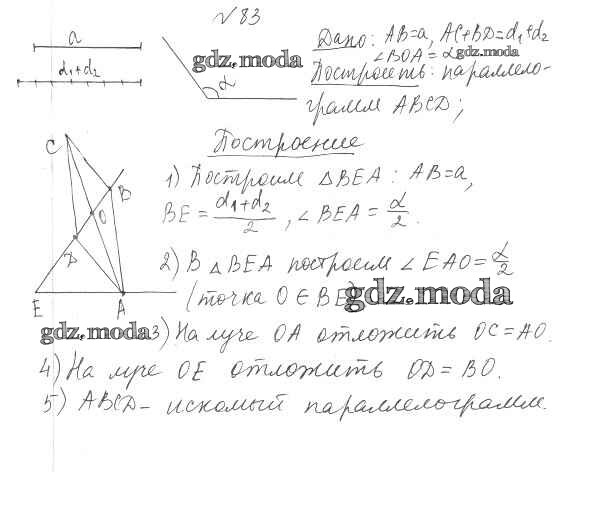 № 83
a
d₁+d₂
α
gdz.moda
Дано: AB=a, AC+BD=d₁+d₂
∠BOA = α gdz.moda
Построить: параллело-
грамм ABCD;
Построение
1) Построим △BEA: AB=a,
BE = d₁+d₂/2, ∠BEA = α/2.
2) В △BEA построим ∠EAO = α/2
(точка O ∈ BE)
gdz.moda
gdz.moda
3) На луче OA отложить OC=AO.
4) На луче OE отложить OD=BO.
5) ABCD – искомый параллелограмм.
C
B
O
D
E
A